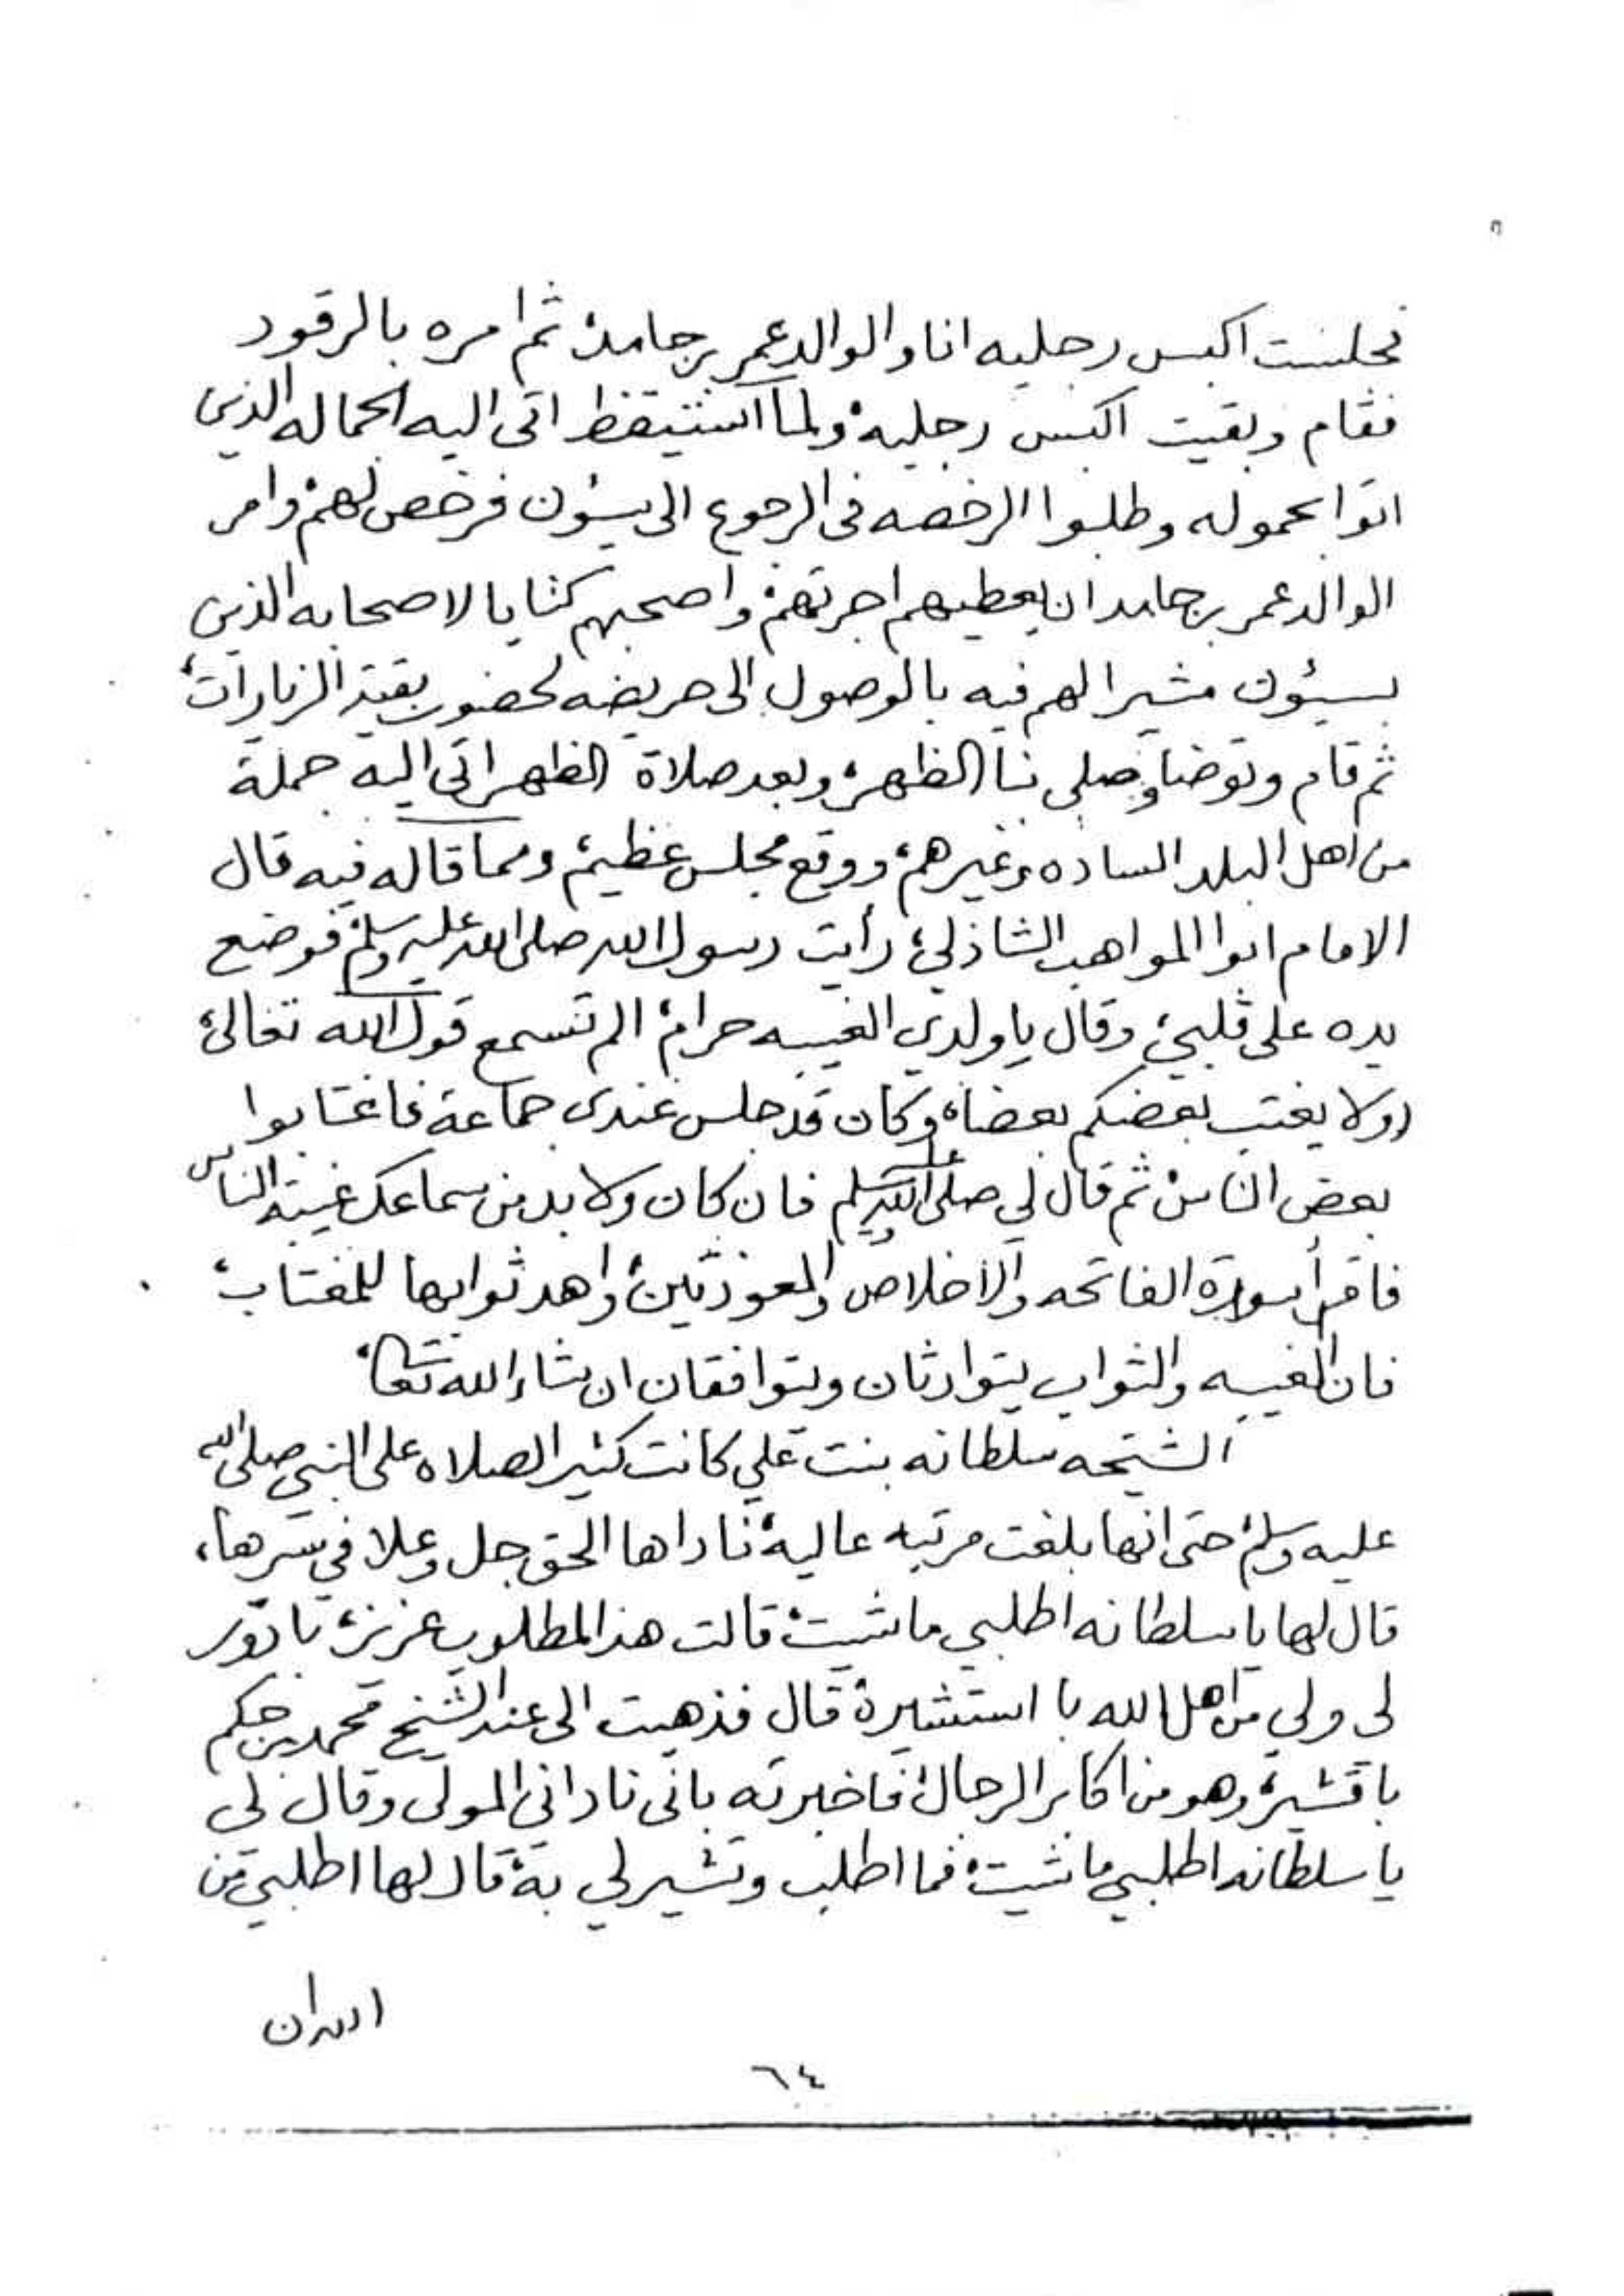 فجلست اكبس رجليه انا والوالد عمر بن حامد، ثم امره بالرقود
فقام وبقيت اكبس رجليه، ولما استيقظ اتى اليه الجماله الذين
اتوا بحموله وطلبوا الرخصه في الرجوع الى سيؤن فرخص لهم، وامر
الوالد عمر بن حامد ان يعطيهم اجرتهم، واصحبهم كتابا لاصحابه الذين
بسيؤن مشيرا لهم فيه بالوصول الى حريضه لحضور بقية الزيارات،
ثم قام وتوضا وصلى بنا الظهر، وبعد صلاة الظهر اتى اليه جملة
من اهل البلد الساده وغيرهم، ووقع مجلس عظيم، ومما قاله فيه قال
الامام ابوا المواهب الشاذلي، رأيت رسول الله صلى الله عليه وسلم، فوضع
يده على قلبي، وقال يا ولدي الغيبه حرام، الم تسمع قول الله تعالى،
(ولا يغتب بعضكم بعضا) وكان قد جلس عندى جماعة فاغتابوا
بعض الناس، ثم قال لي صلى الله عليه وسلم فان كان ولا بد من سماعك غيبة الناس
فاقرأ سورة الفاتحه والاخلاص والمعوذتين، واهد ثوابها للمغتاب،
فان الغيبه والثواب يتوارثان ويتوافقان ان شاء الله تعالى،
الشيخه سلطانه بنت علي كانت كثير الصلاه على النبي صلى الله
عليه وسلم، حتى انها بلغت مرتبه عالية، ناداها الحق جل وعلا في سرها،
قال لها يا سلطانه اطلبي ما شيت، قالت هذا المطلوب عزيز، با دوّر
لى ولي من اهل الله با استشيره، قال فذهبت الى عند الشيخ محمد بن حكم
باقشير، وهو من اكابر الرجال، فاخبرته بانى نادانى المولى وقال لي
يا سلطانه اطلبي ما شيت، فما اطلب وتشير لي به، قال لها اطلبي من